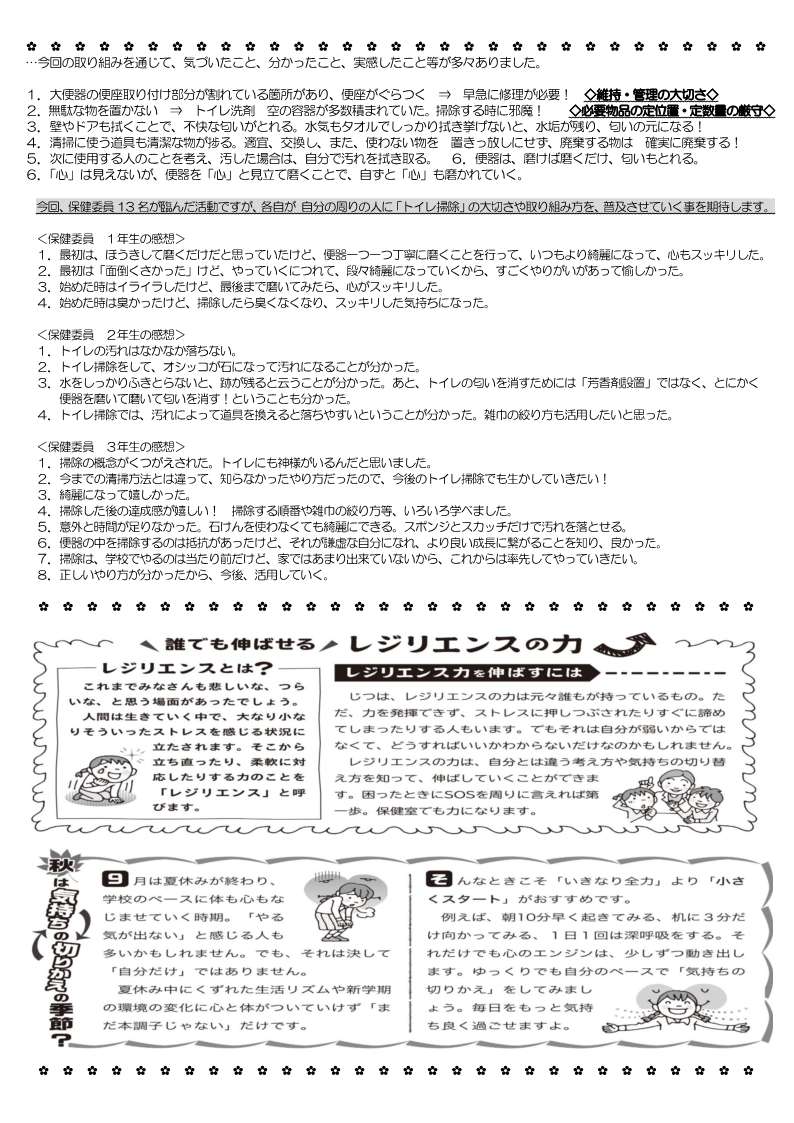 ✿ ✿ ✿ ✿ ✿ ✿ ✿ ✿ ✿ ✿ ✿ ✿ ✿ ✿ ✿ ✿ ✿ ✿ ✿ ✿ ✿ ✿ ✿ ✿ ✿ ✿ ✿ ✿ ✿ ✿ ✿
…今回の取り組みを通じて、気づいたこと、分かったこと、実感したこと等が多々ありました。
1．大便器の便座取り付け部分が割れている箇所があり、便座がぐらつく ⇒ 早急に修理が必要！ ◇維持・管理の大切さ◇
2．無駄な物を置かない ⇒ トイレ洗剤 空の容器が多数積まれていた。掃除する時に邪魔！ ◇必要物品の定位置・定数量の厳守◇
3．壁やドアも拭くことで、不快な匂いがとれる。水気もタオルでしっかり拭き挙げないと、水垢が残り、匂いの元になる！
4．清掃に使う道具も清潔な物が捗る。適宜、交換し、また、使わない物を 置きっ放しにせず、廃棄する物は 確実に廃棄する！
5．次に使用する人のことを考え、汚した場合は、自分で汚れを拭き取る。 6．便器は、磨けば磨くだけ、匂いもとれる。
6．「心」は見えないが、便器を「心」と見立て磨くことで、自ずと「心」も磨かれていく。
今回、保健委員13名が臨んだ活動ですが、各自が 自分の周りの人に「トイレ掃除」の大切さや取り組み方を、普及させていく事を期待します。
＜保健委員 1年生の感想＞
1．最初は、ほうきして磨くだけだと思っていたけど、便器一つ一つ丁寧に磨くことを行って、いつもより綺麗になって、心もスッキリした。
2．最初は「面倒くさかった」けど、やっていくにつれて、段々綺麗になっていくから、すごくやりがいがあって愉しかった。
3．始めた時はイライラしたけど、最後まで磨いてみたら、心がスッキリした。
4．始めた時は臭かったけど、掃除したら臭くなくなり、スッキリした気持ちになった。
＜保健委員 2年生の感想＞
1．トイレの汚れはなかなか落ちない。
2．トイレ掃除をして、オシッコが石になって汚れになることが分かった。
3．水をしっかりふきとらないと、跡が残ると云うことが分かった。あと、トイレの匂いを消すためには「芳香剤設置」ではなく、とにかく
便器を磨いて磨いて匂いを消す！ということも分かった。
4．トイレ掃除では、汚れによって道具を換えると落ちやすいということが分かった。雑巾の絞り方も活用したいと思った。
＜保健委員 3年生の感想＞
1．掃除の概念がくつがえされた。トイレにも神様がいるんだと思いました。
2．今までの清掃方法とは違って、知らなかったやり方だったので、今後のトイレ掃除でも生かしていきたい！
3．綺麗になって嬉しかった。
4．掃除した後の達成感が嬉しい！ 掃除する順番や雑巾の絞り方等、いろいろ学べました。
5．意外と時間が足りなかった。石けんを使わなくても綺麗にできる。スポンジとスカッチだけで汚れを落とせる。
6．便器の中を掃除するのは抵抗があったけど、それが謙虚な自分になれ、より良い成長に繋がることを知り、良かった。
7．掃除は、学校でやるのは当たり前だけど、家ではあまり出来ていないから、これからは率先してやっていきたい。
8．正しいやり方が分かったから、今後、活用していく。
✿ ✿ ✿ ✿ ✿ ✿ ✿ ✿ ✿ ✿ ✿ ✿ ✿ ✿ ✿ ✿ ✿ ✿ ✿ ✿ ✿ ✿ ✿ ✿ ✿ ✿ ✿ ✿ ✿ ✿
誰でも伸ばせる レジリエンスの力
レジリエンスとは？
これまでみなさんも悲しいな、つら
いな、と思う場面があったでしょう。
人間は生きていく中で、大なり小な
りそういったストレスを感じる状況に
立たされます。そこから
立ち直ったり、柔軟に対
応したりする力のことを
「レジリエンス」と呼
びます。
レジリエンス力を伸ばすには
じつは、レジリエンスの力は元々誰もが持っているもの。た
だ、力を発揮できず、ストレスに押しつぶされたりすぐに諦め
てしまったりする人もいます。でもそれは自分が弱いからでは
なくて、どうすればいいかわからないだけなのかもしれません。
レジリエンスの力は、自分とは違う考え方や気持ちの切り替
え方を知って、伸ばしていくことができま
す。困ったときにSOSを周りに言えれば第
一歩。保健室でも力になります。
秋は気持ちの切りかえの季節？
9月は夏休みが終わり、
学校のペースに体も心もな
じませていく時期。「やる
気が出ない」と感じる人も
多いかもしれません。でも、それは決して
「自分だけ」ではありません。
夏休み中にくずれた生活リズムや新学期
の環境の変化に心と体がついていけず「ま
だ本調子じゃない」だけです。
そんなときこそ「いきなり全力」より「小さ
くスタート」がおすすめです。
例えば、朝10分早く起きてみる、机に３分だ
け向かってみる、１日１回は深呼吸をする。そ
れだけでも心のエンジンは、少しずつ動き出し
ます。ゆっくりでも自分のペースで「気持ちの
切りかえ」をしてみまし
ょう。毎日をもっと気持
ち良く過ごせますよ。
✿ ✿ ✿ ✿ ✿ ✿ ✿ ✿ ✿ ✿ ✿ ✿ ✿ ✿ ✿ ✿ ✿ ✿ ✿ ✿ ✿ ✿ ✿ ✿ ✿ ✿ ✿ ✿ ✿ ✿